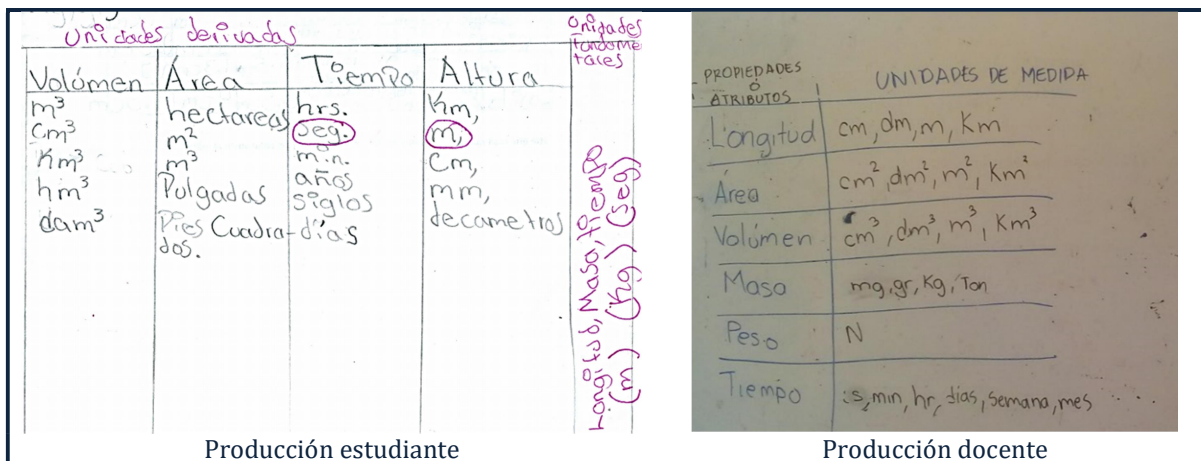 Unidades derivadas
Unidades fundametales
Volúmen Área Tiempo Altura
m³ hectareas hrs. Km,
cm³ m² seg. m,
Km³ m³ min. cm,
hm³ Pulgadas años mm,
dam³ Pies Cuadrados. siglos decametros
días
Longitud, Masa, tiempo
(m) (Kg) (seg)
PROPIEDADES Ó ATRIBUTOS UNIDADES DE MEDIDA
Longitud cm, dm, m, Km
Área cm², dm², m², Km²
Volúmen cm³, dm³, m³, Km³
Masa mg, gr, Kg, Ton
Peso N
Tiempo s, min, hr, días, semana, mes
Producción estudiante Producción docente